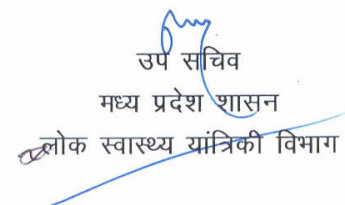 उप सचिव
मध्य प्रदेश शासन
लोक स्वास्थ्य यांत्रिकी विभाग